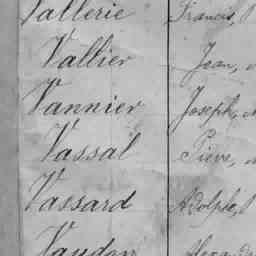 Vallerie Francis,
Vallier Jean,
Vannier Joseph,
Vassal
Vassard Adolphe,
Vaudon